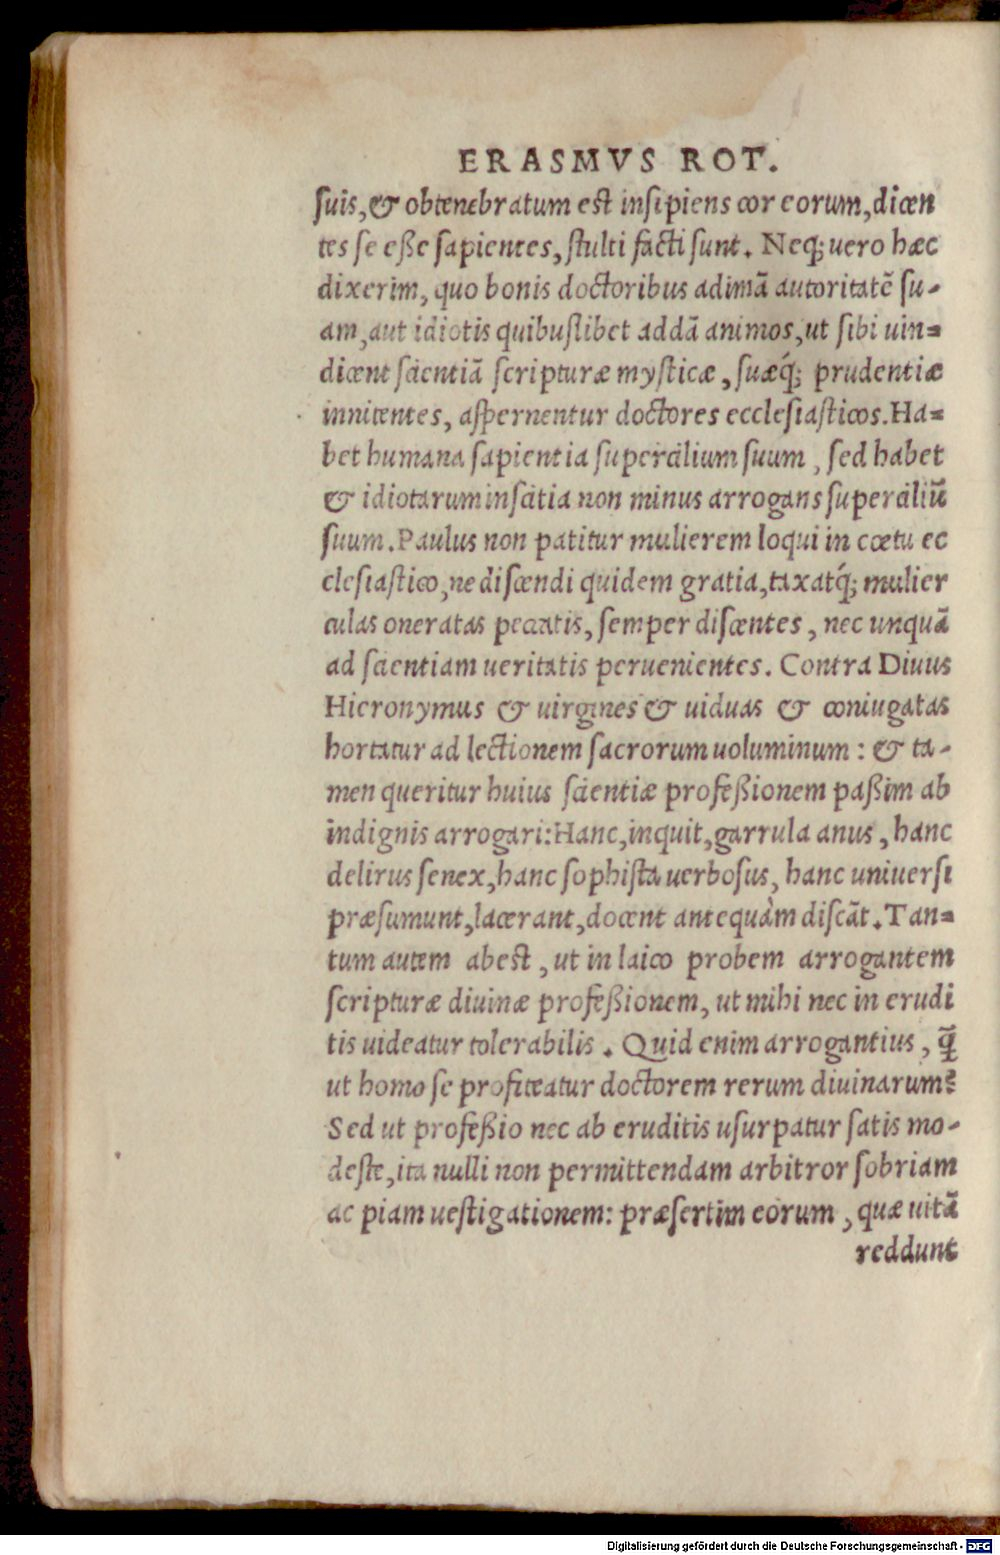 ERASMVS ROT.
suis, & obtenebratum est insipiens cor eorum, dicen
tes se eße sapientes, stulti facti sunt. Neq; uero hæc
dixerim, quo bonis doctoribus adimā autoritatē su-
am, aut idiotis quibuslibet addā animos, ut sibi uin=
dicent scientiā scripturæ mysticæ, suæq́; prudentiæ
innitentes, aspernentur doctores ecclesiasticos. Ha=
bet humana sapientia supercilium suum, sed habet
& idiotarum inscitia non minus arrogans superciliū
suum. Paulus non patitur mulierem loqui in cœtu ec
clesiastico, ne discendi quidem gratia, taxatq́; mulier
culas oneratas peccatis, semper discentes, nec unquā
ad scientiam ueritatis peruenientes. Contra Diuus
Hieronymus & uirgines & uiduas & coniugatas
hortatur ad lectionem sacrorum uoluminum: & ta-
men queritur huius scientiæ profeßionem paßim ab
indignis arrogari: Hanc, inquit, garrula anus, hanc
delirus senex, hanc sophista uerbosus, hanc uniuersi
præsumunt, lacerant, docent antequàm discāt. Tan=
tum autem abest, ut in laico probem arrogantem
scripturæ diuinæ profeßionem, ut mihi nec in erudi
tis uideatur tolerabilis. Quid enim arrogantius, q̄
ut homo se profiteatur doctorem rerum diuinarum?
Sed ut profeßio nec ab eruditis usurpatur satis mo-
deste, ita nulli non permittendam arbitror sobriam
ac piam uestigationem: præsertim eorum, quæ uitā
reddunt
Digitalisierung gefördert durch die Deutsche Forschungsgemeinschaft - DFG